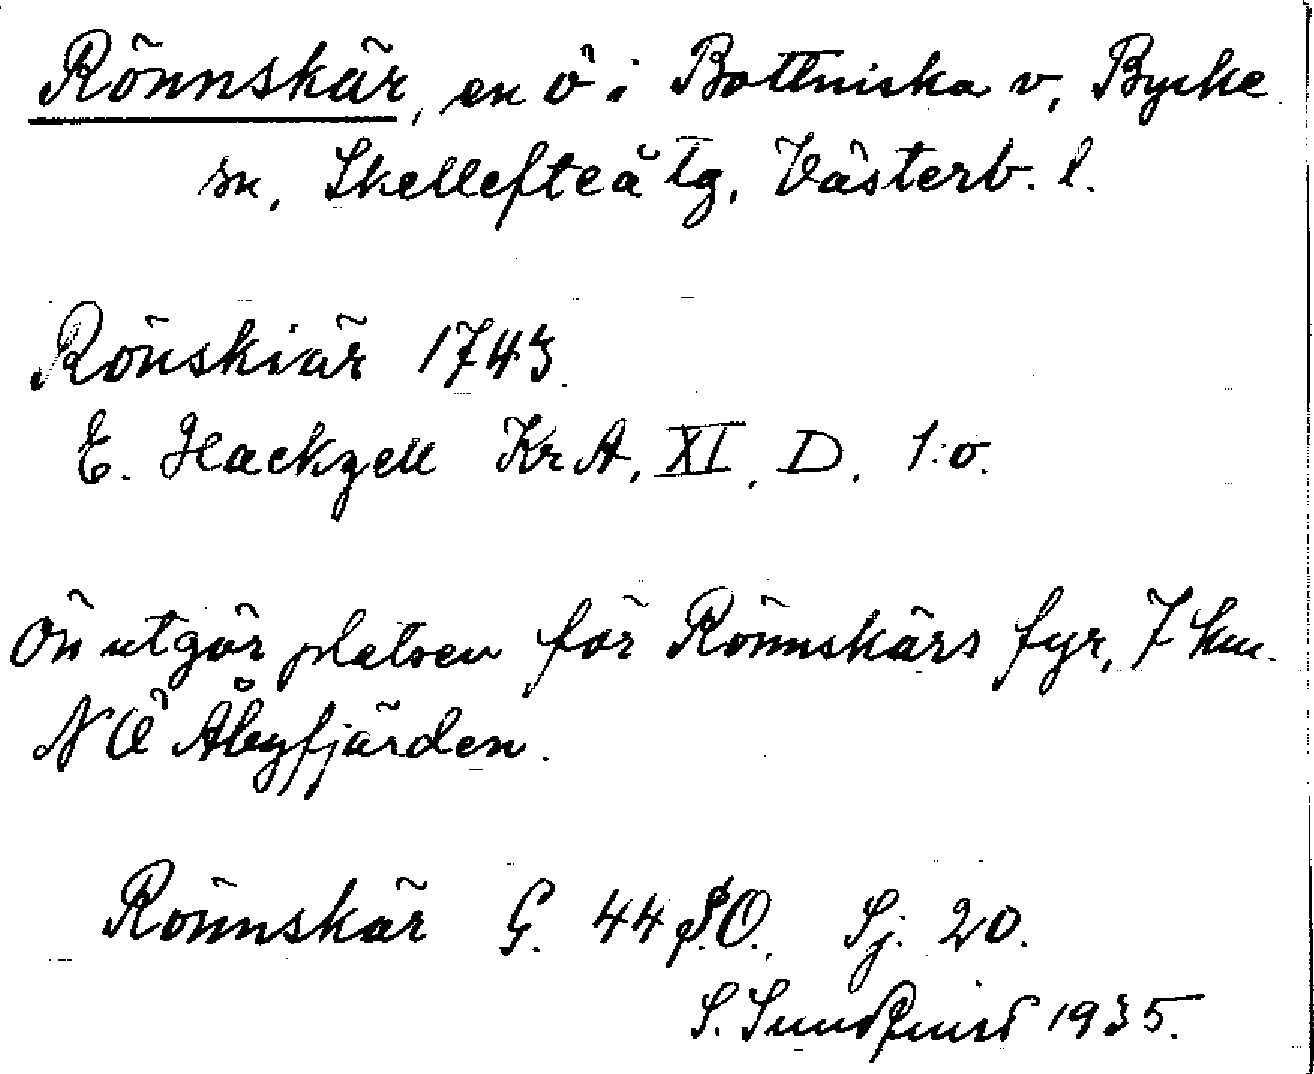 Rönnskär, en ö i Bottniska v, Byske
sn, Skellefteå tg, Västerb. l.
Rönskiär 1743.
E. Hackzell KrA, XI, D. 1:o.
Ön utgör platsen för Rönnskärs fyr, 7 km.
NO Åbyfjärden.
Rönnskär G. 44 S.O. Sj. 20.
S. Sundqvist 1935.